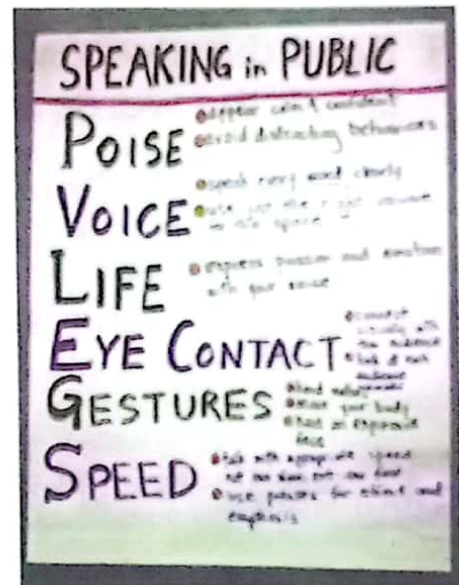 SPEAKING in PUBLIC
POISE
appear calm & confident
avoid distracting behaviors
VOICE
speak every word clearly
use just the right volume
space
LIFE
express passion and emotion
with your voice
EYE CONTACT
connect
visually with
audience
look at each
audience
GESTURES
hand
move your body
have an expressive
face
SPEED
talk with appropriate speed
not too slow not too fast
use pauses for effect and
emphasis